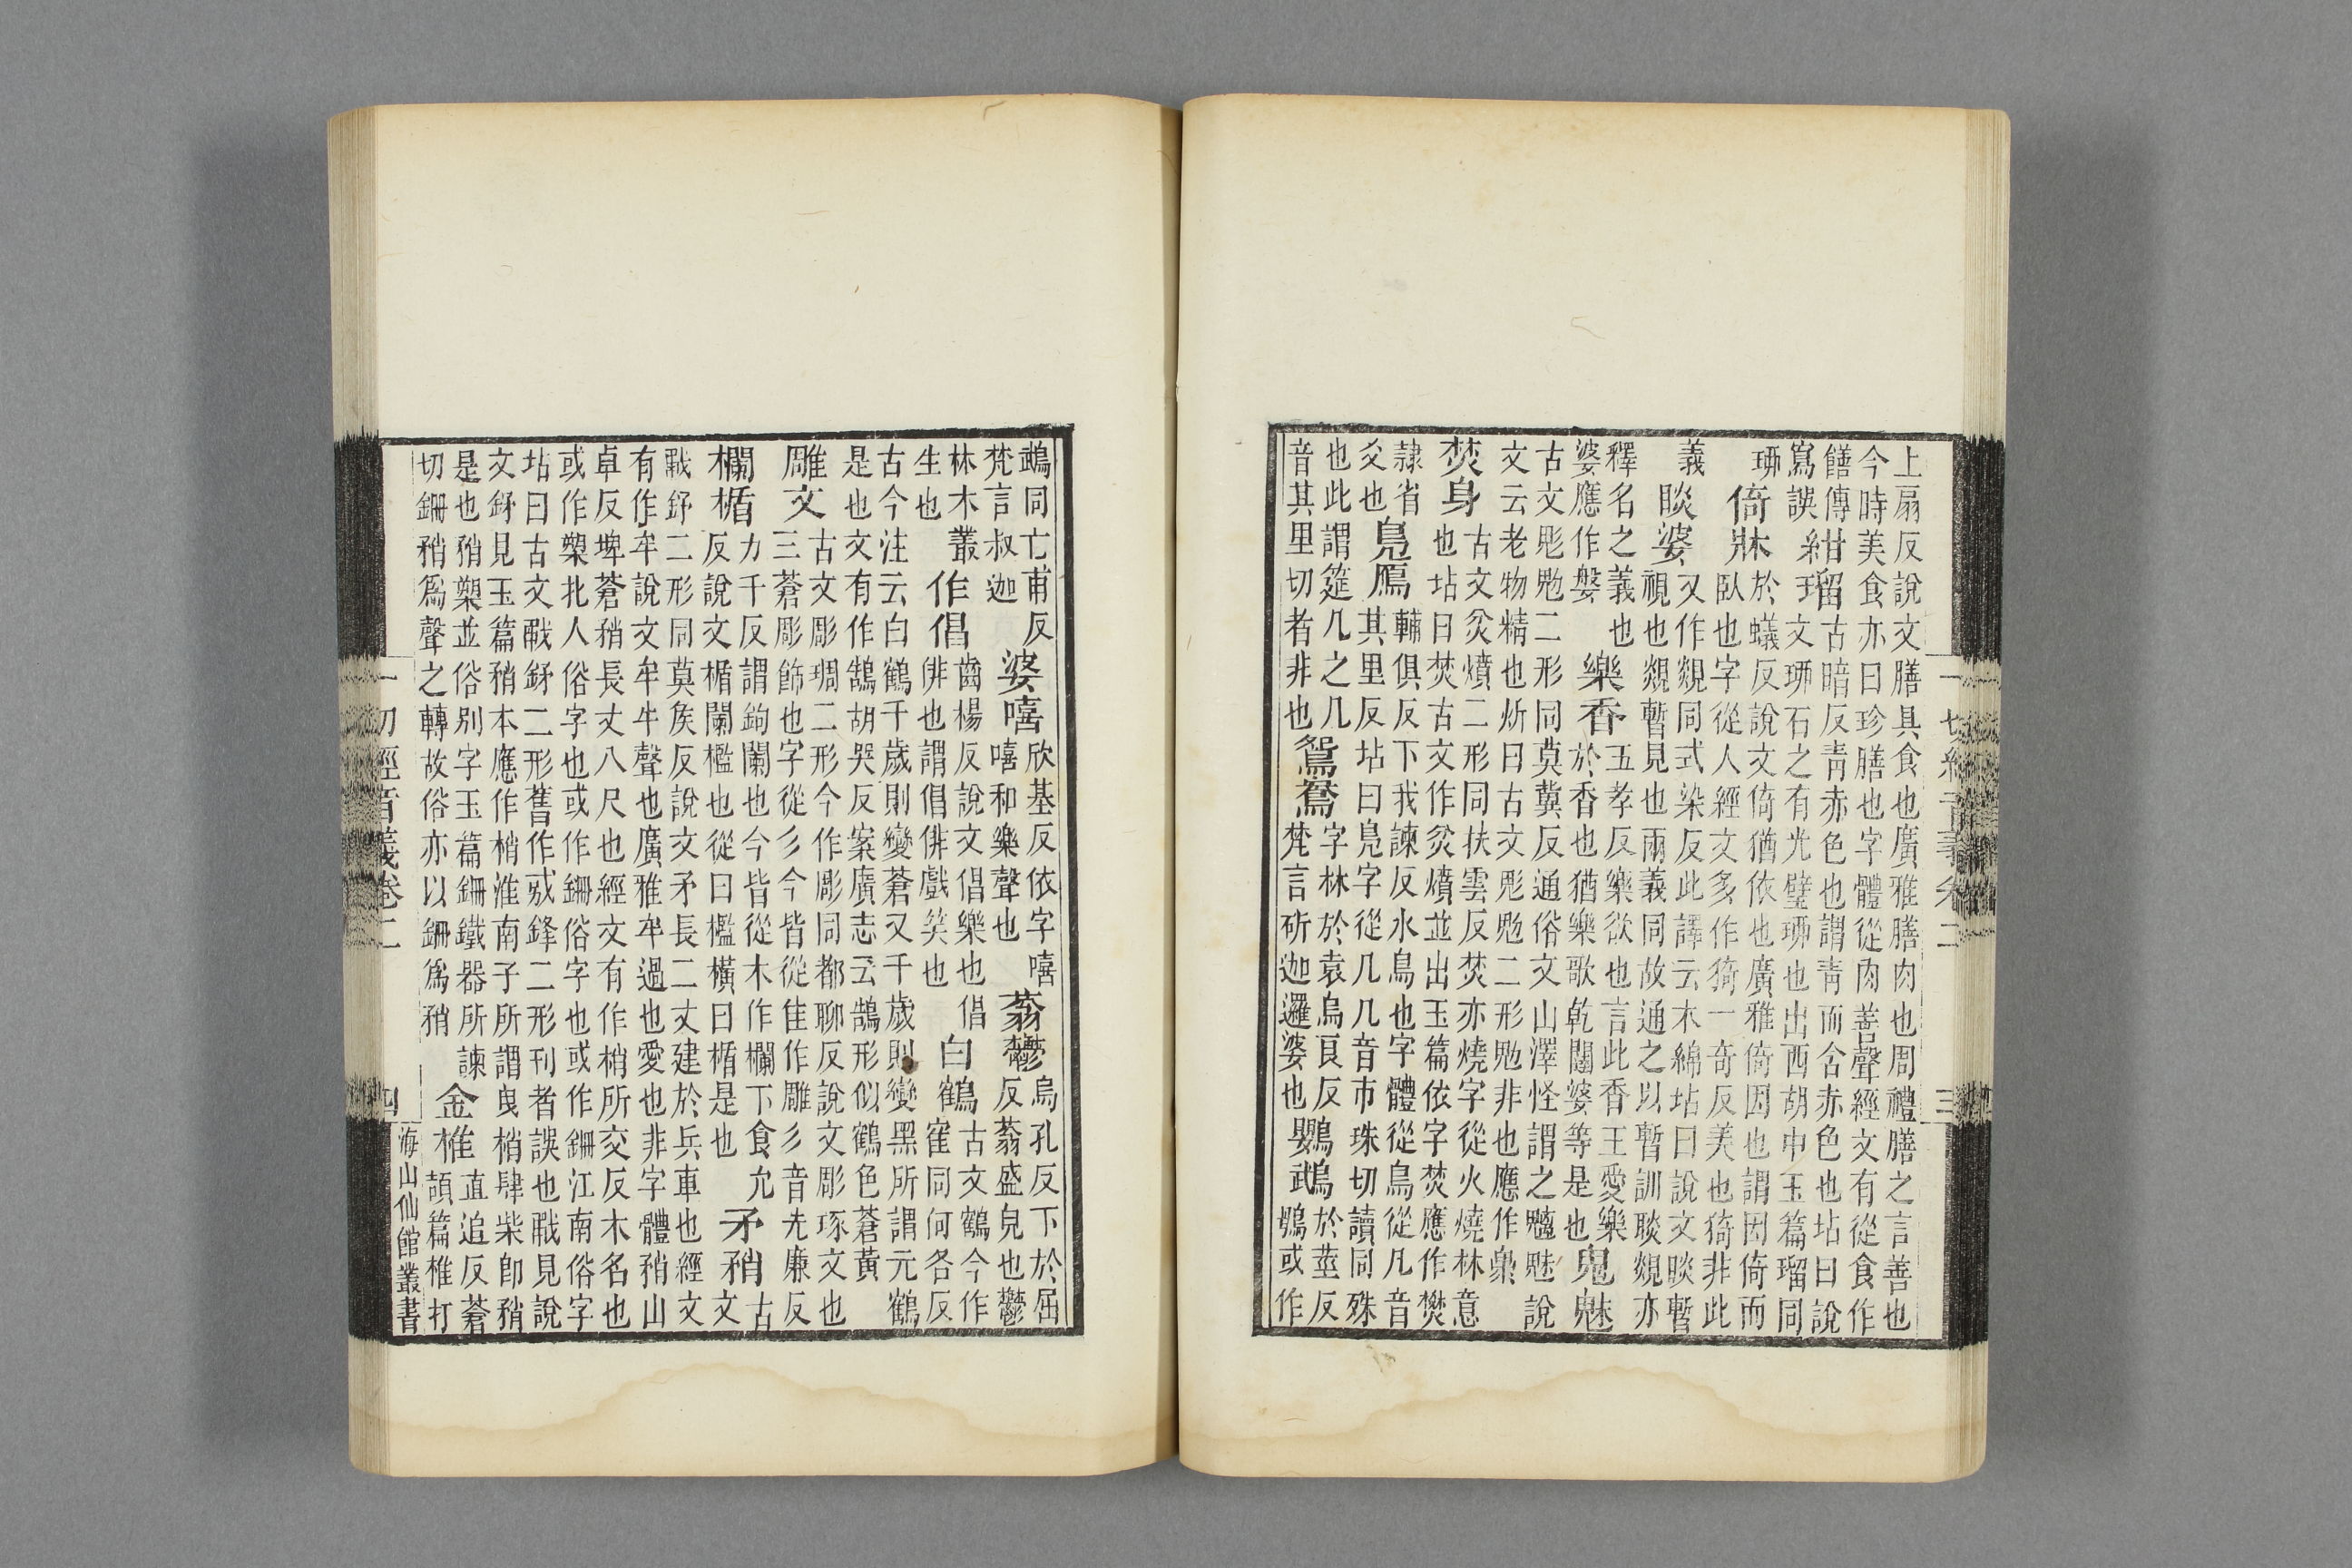 上扇反說文膳具食也廣雅膳肉也周禮膳之言善也
今時美食亦曰珍膳也字體從肉善聲經文有從食作
饍傳寫誤 紺瑠 古暗反青赤色也謂青而含赤色也坫曰說
文珋石之有光璧珋也出西胡中玉篇瑠同
珋 倚牀 於蟻反說文倚猶依也廣雅倚因也謂因倚而
臥也字從人經文多作猗一奇反美也猗非此
義 睒婆 又作覢同式染反此譯云木綿坫曰說文睒暫
視也覢暫見也兩義同故通之以暫訓睒覢亦
釋名之義也
婆應作槃 樂香 五孝反樂欲也言此香王愛樂
於香也猶樂歌乾闥婆等是也 鬼魅
古文鬽二形同莫冀反通俗文山澤怪謂之魑魅說
文云老物精也炘曰古文二形非也應作
焚身 古文炃燌二形同扶雲反焚亦燒字從火燒林意
也坫曰焚古文作炃燌並出玉篇依字焚應作樊
隸省
爻也 鳧鴈 輔俱反下我諫反水鳥也字體從鳥從几音
其里反坫曰鳧字從几几音市珠切讀同殊
也此謂筵几之几
音其里切者非也 鴛鴦 字林於袁烏良反
梵言斫迦邏婆也 鸚鵡 於莖反
鴞或作
鵡同亡甫反
梵言叔迦 婆嘻 欣基反依字嘻
嘻和樂聲也 蓊鬱 烏孔反下於屈
反蓊盛皃也鬱
林木叢
生也 作倡 齒楊反說文倡樂也倡
俳也謂倡俳戲笑也 白鶴 古文鶴今作
寉同何各反
古今注云白鶴千歲則變蒼又千歲則變黑所謂元鶴
是也文有作鵠胡哭反案廣志云鵠形似鶴色蒼黃
雕文 古文彫琱二形今作彫同都聊反說文彫琢文也
三蒼彫飾也字從彡今皆從隹作雕彡音先廉反
欄楯 力千反謂鉤闌也今皆從木作欄下食允
反說文楯闌檻也從曰檻橫曰楯是也 矛矟 古
文
二形同莫矦反說文矛長二丈建於兵車也經文
有作牟說文牟牛聲也廣雅牟過也愛也非字體矟山
卓反埤蒼矟長丈八尺也經文有作梢所交反木名也
或作槊北人俗字也或作鉫俗字也或作鉫江南俗字
坫曰古文二形舊作鋒二形刊者誤也見說
文見玉篇矟本應作梢淮南子所謂曳梢肆柴卽矟
是也矟槊並俗別字玉篇鉫鐵器所諫
切鉫矟爲聲之轉故俗亦以鉫爲矟 金椎 直追反蒼
頡篇椎打
一切經音義卷二
四
海山仙館叢書